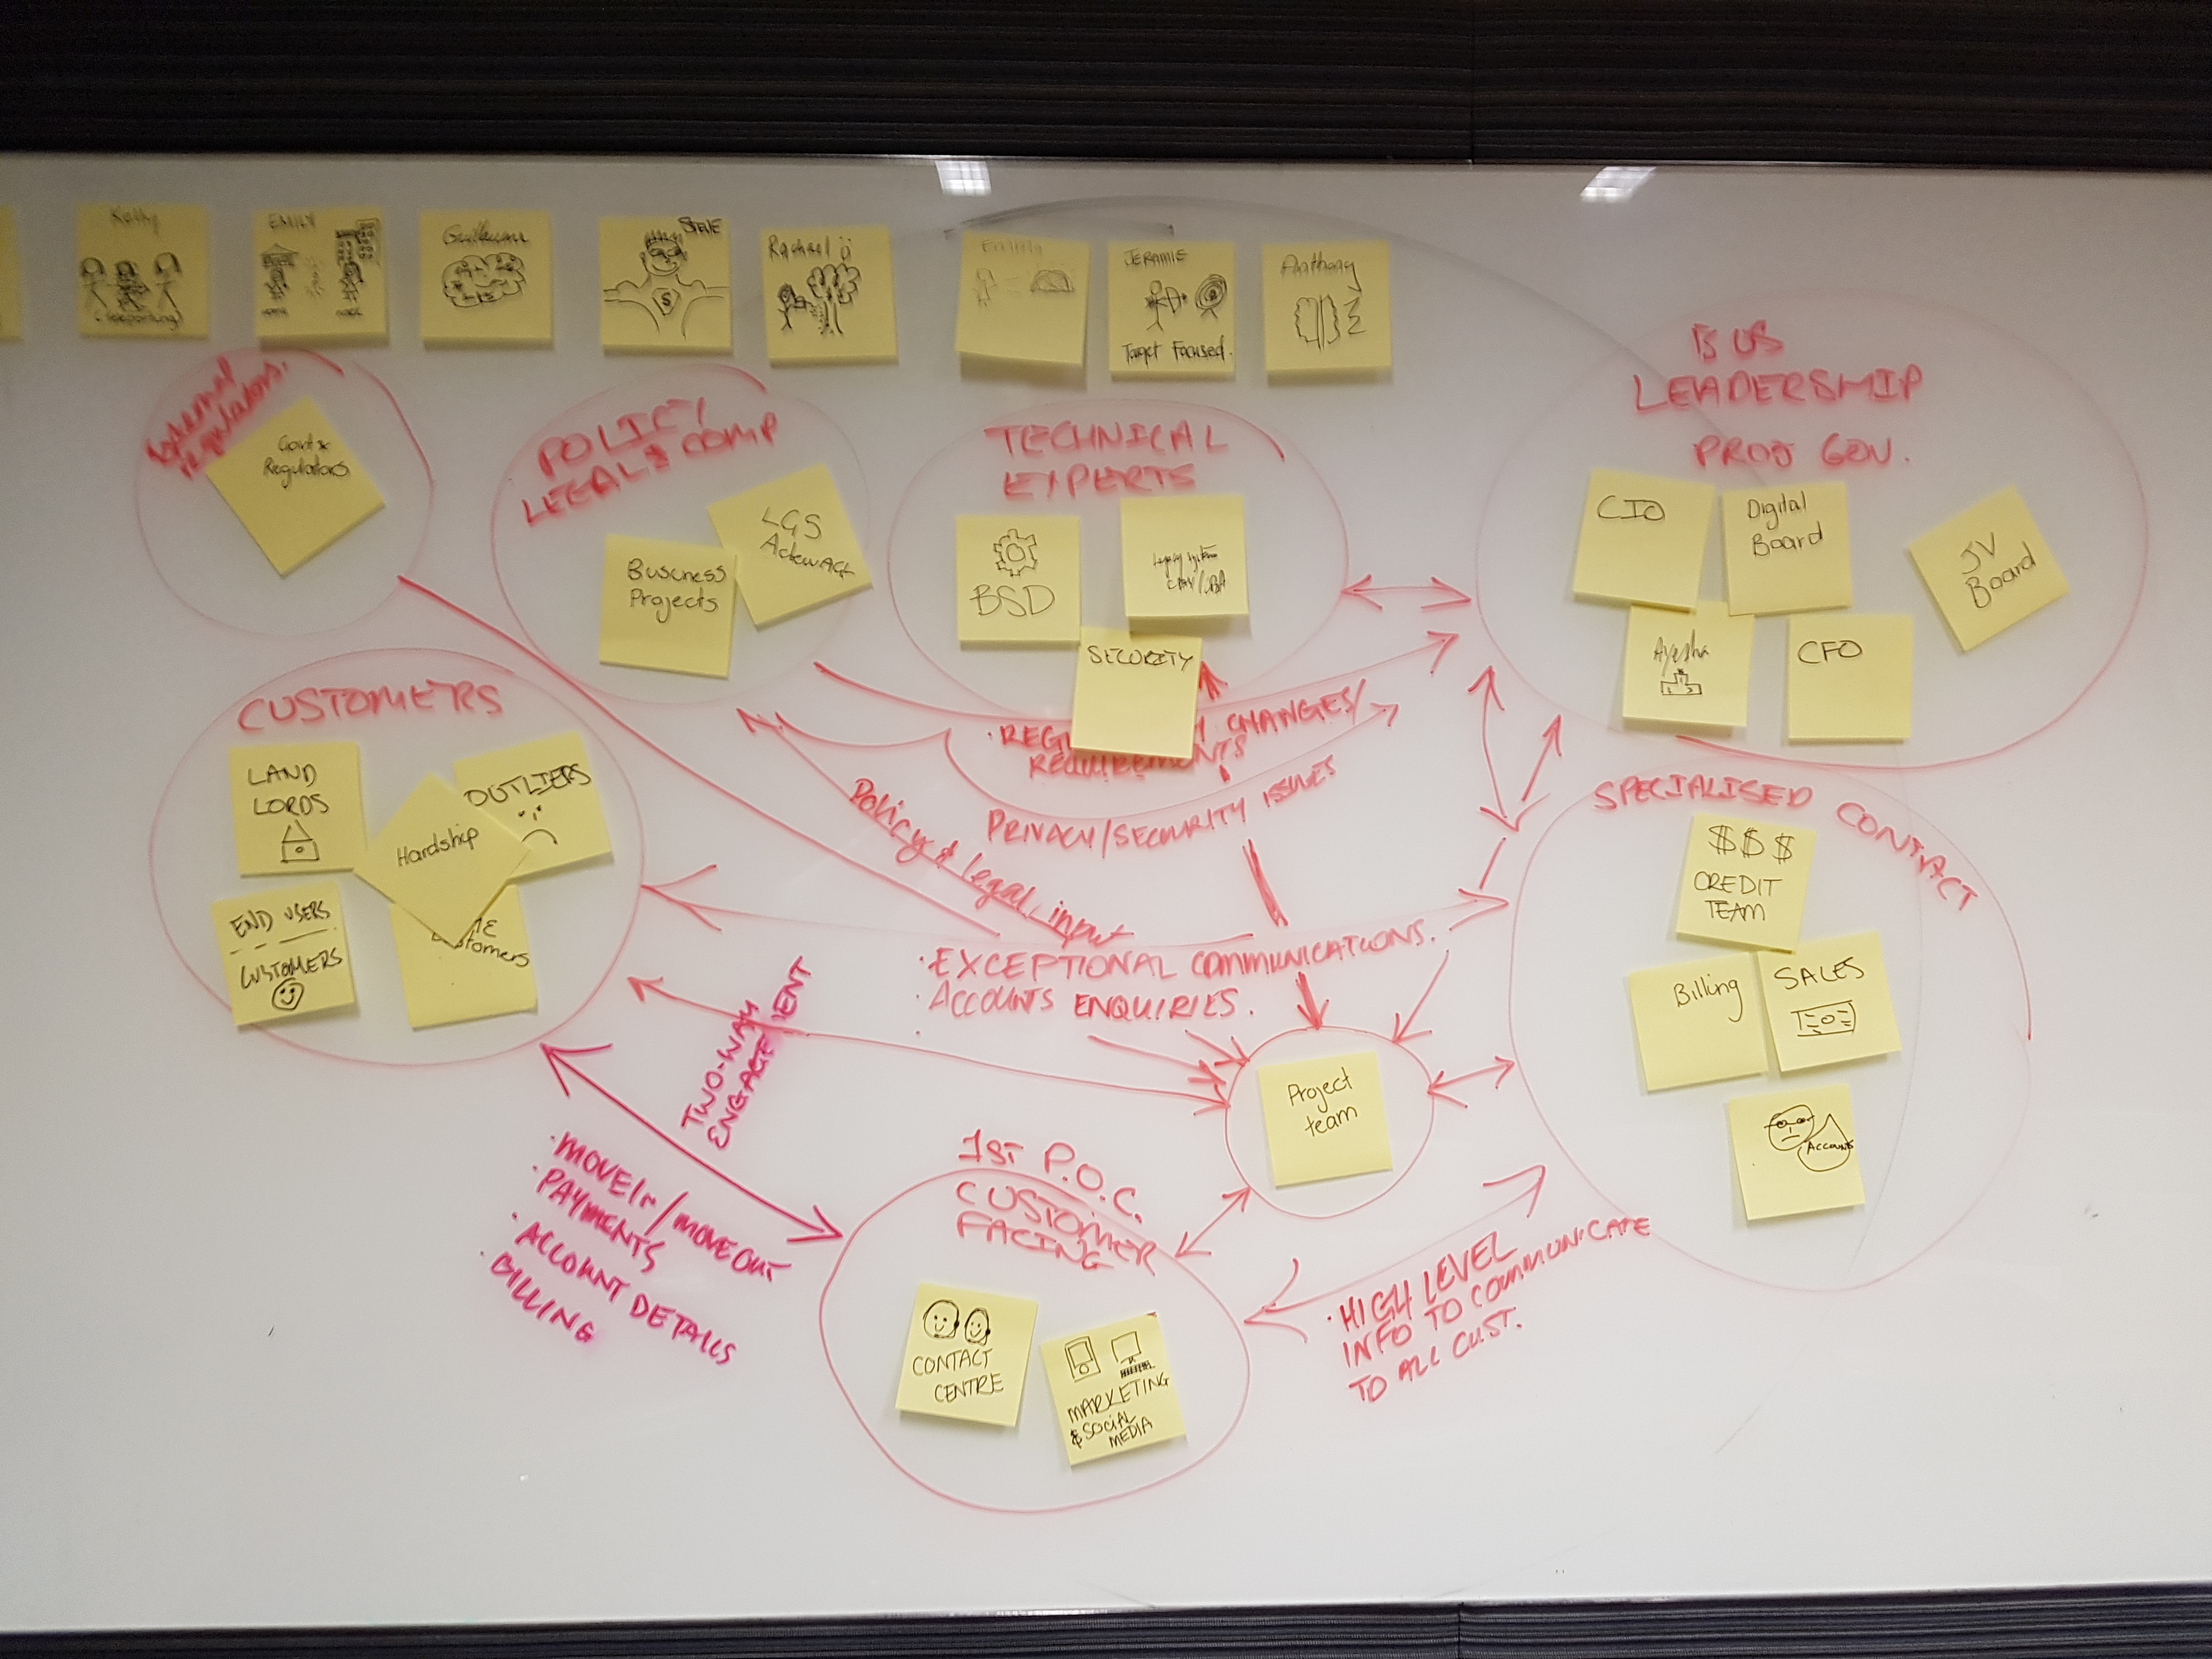 Kelly
EMILY
Guillaume
STEVE
$
Rachael
JERAMIE
Target Focused.
Anthony
External
regulators.
Gov't &
Regulators
POLICY/
LEGAL & COMP
Business
Projects
LGS
ActewAGL
TECHNICAL
EXPERTS
BSD
Legacy systems
SECURITY
LEADERSHIP
PROJ GOV.
CIO
Digital
Board
JV
Board
Ayesha
CFO
CUSTOMERS
LAND
LORDS
OUTLIERS
Hardship
END USERS
CUSTOMERS
CHANGES/
REQUIREMENTS
PRIVACY/SECURITY ISSUES
Policy & legal input
SPECIALISED CONTACT
$ $ $
CREDIT
TEAM
Billing
SALES
ACCOUNTS
· EXCEPTIONAL COMMUNICATIONS.
· ACCOUNTS ENQUIRIES.
TWO-WAY
ENGAGEMENT
Project
team
· MOVE IN/MOVE OUT
· PAYMENTS
· ACCOUNT DETAILS
· BILLING
1ST P.O.C.
CUSTOMER
FACING
CONTACT
CENTRE
MARKETING
& SOCIAL
MEDIA
· HIGH LEVEL
INFO TO COMMUNICATE
TO ALL CUST.